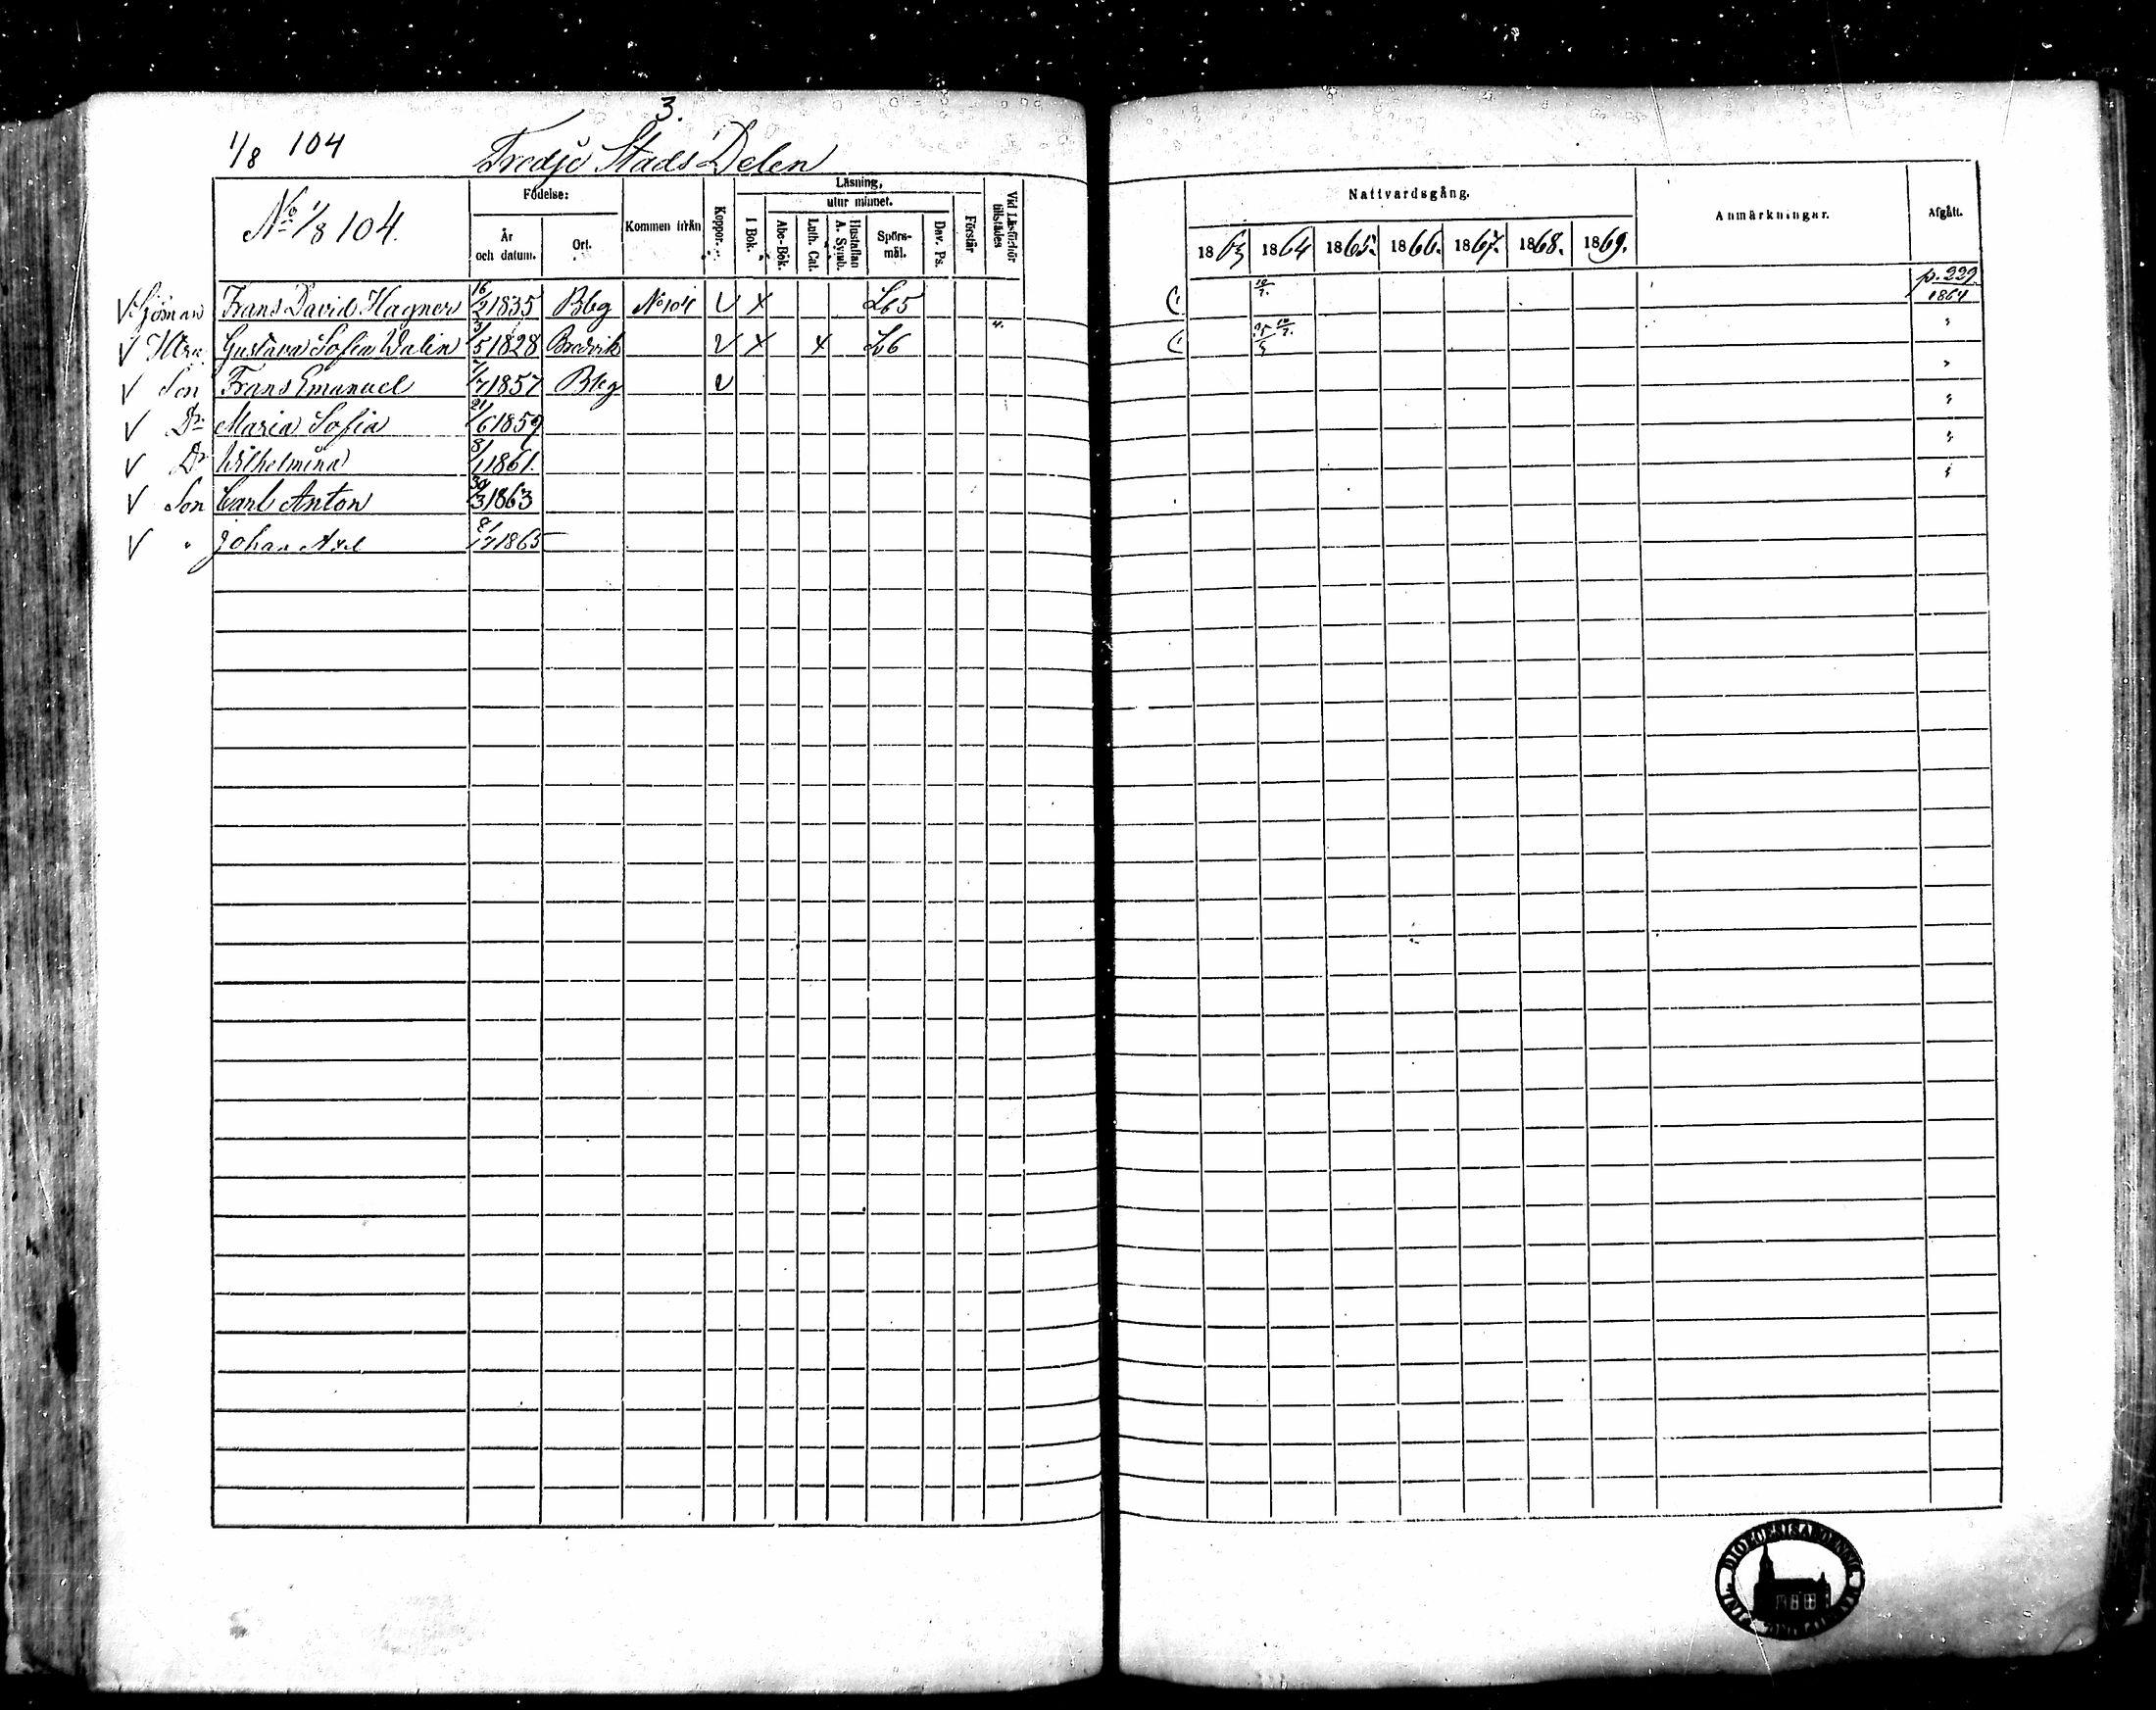 3.
1/8 104
Tredje Stads Delen
No 1/8 104.
Födelse:
År och datum.
Ort.
Kommen ifrån
Koppor.
Läsning,
utur minnet.
I Bok.
Abc-Bok.
Luth. Cat.
Hustaflan A. Symb.
Spörs-mål.
Dav. Ps.
Förstår
Vid Läsförhör tillstädes
Nattvardsgång.
1863 1864 1865. 1866. 1867. 1868. 1869.
Anmärkningar.
Afgått.
V Sjöman Frans David Hagner 16/2 1835 Bbg No 104 V X L65 10/7. p. 229. 1864
V Htru Gustava Sofia Walin 3/5 1828 Bredvik V X X L6 4. 10/7.
V Son Frans Emanuel 1/7 1857 Bbg V
V Dr Maria Sofia 21/6 1859
V Dr Wilhelmina 8/1 1861.
V Son Carl Anton 30/3 1863
V " Johan Axel 1865